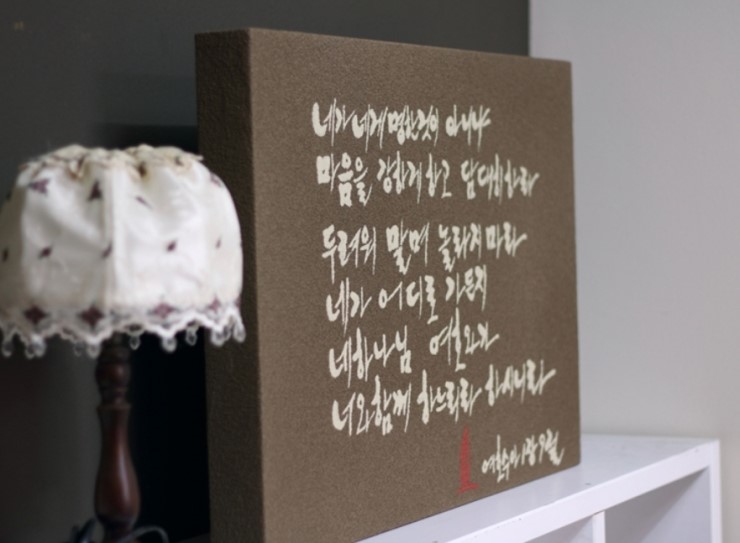 네가 네게 명한것이 아니냐
마음을 강하게 하고 담대히하라
두려워 말며 놀라지마라
네가 어디로 가든지
네하나님 여호와가
너와함께 하느리라 하시니라
여호수아 1장 9절